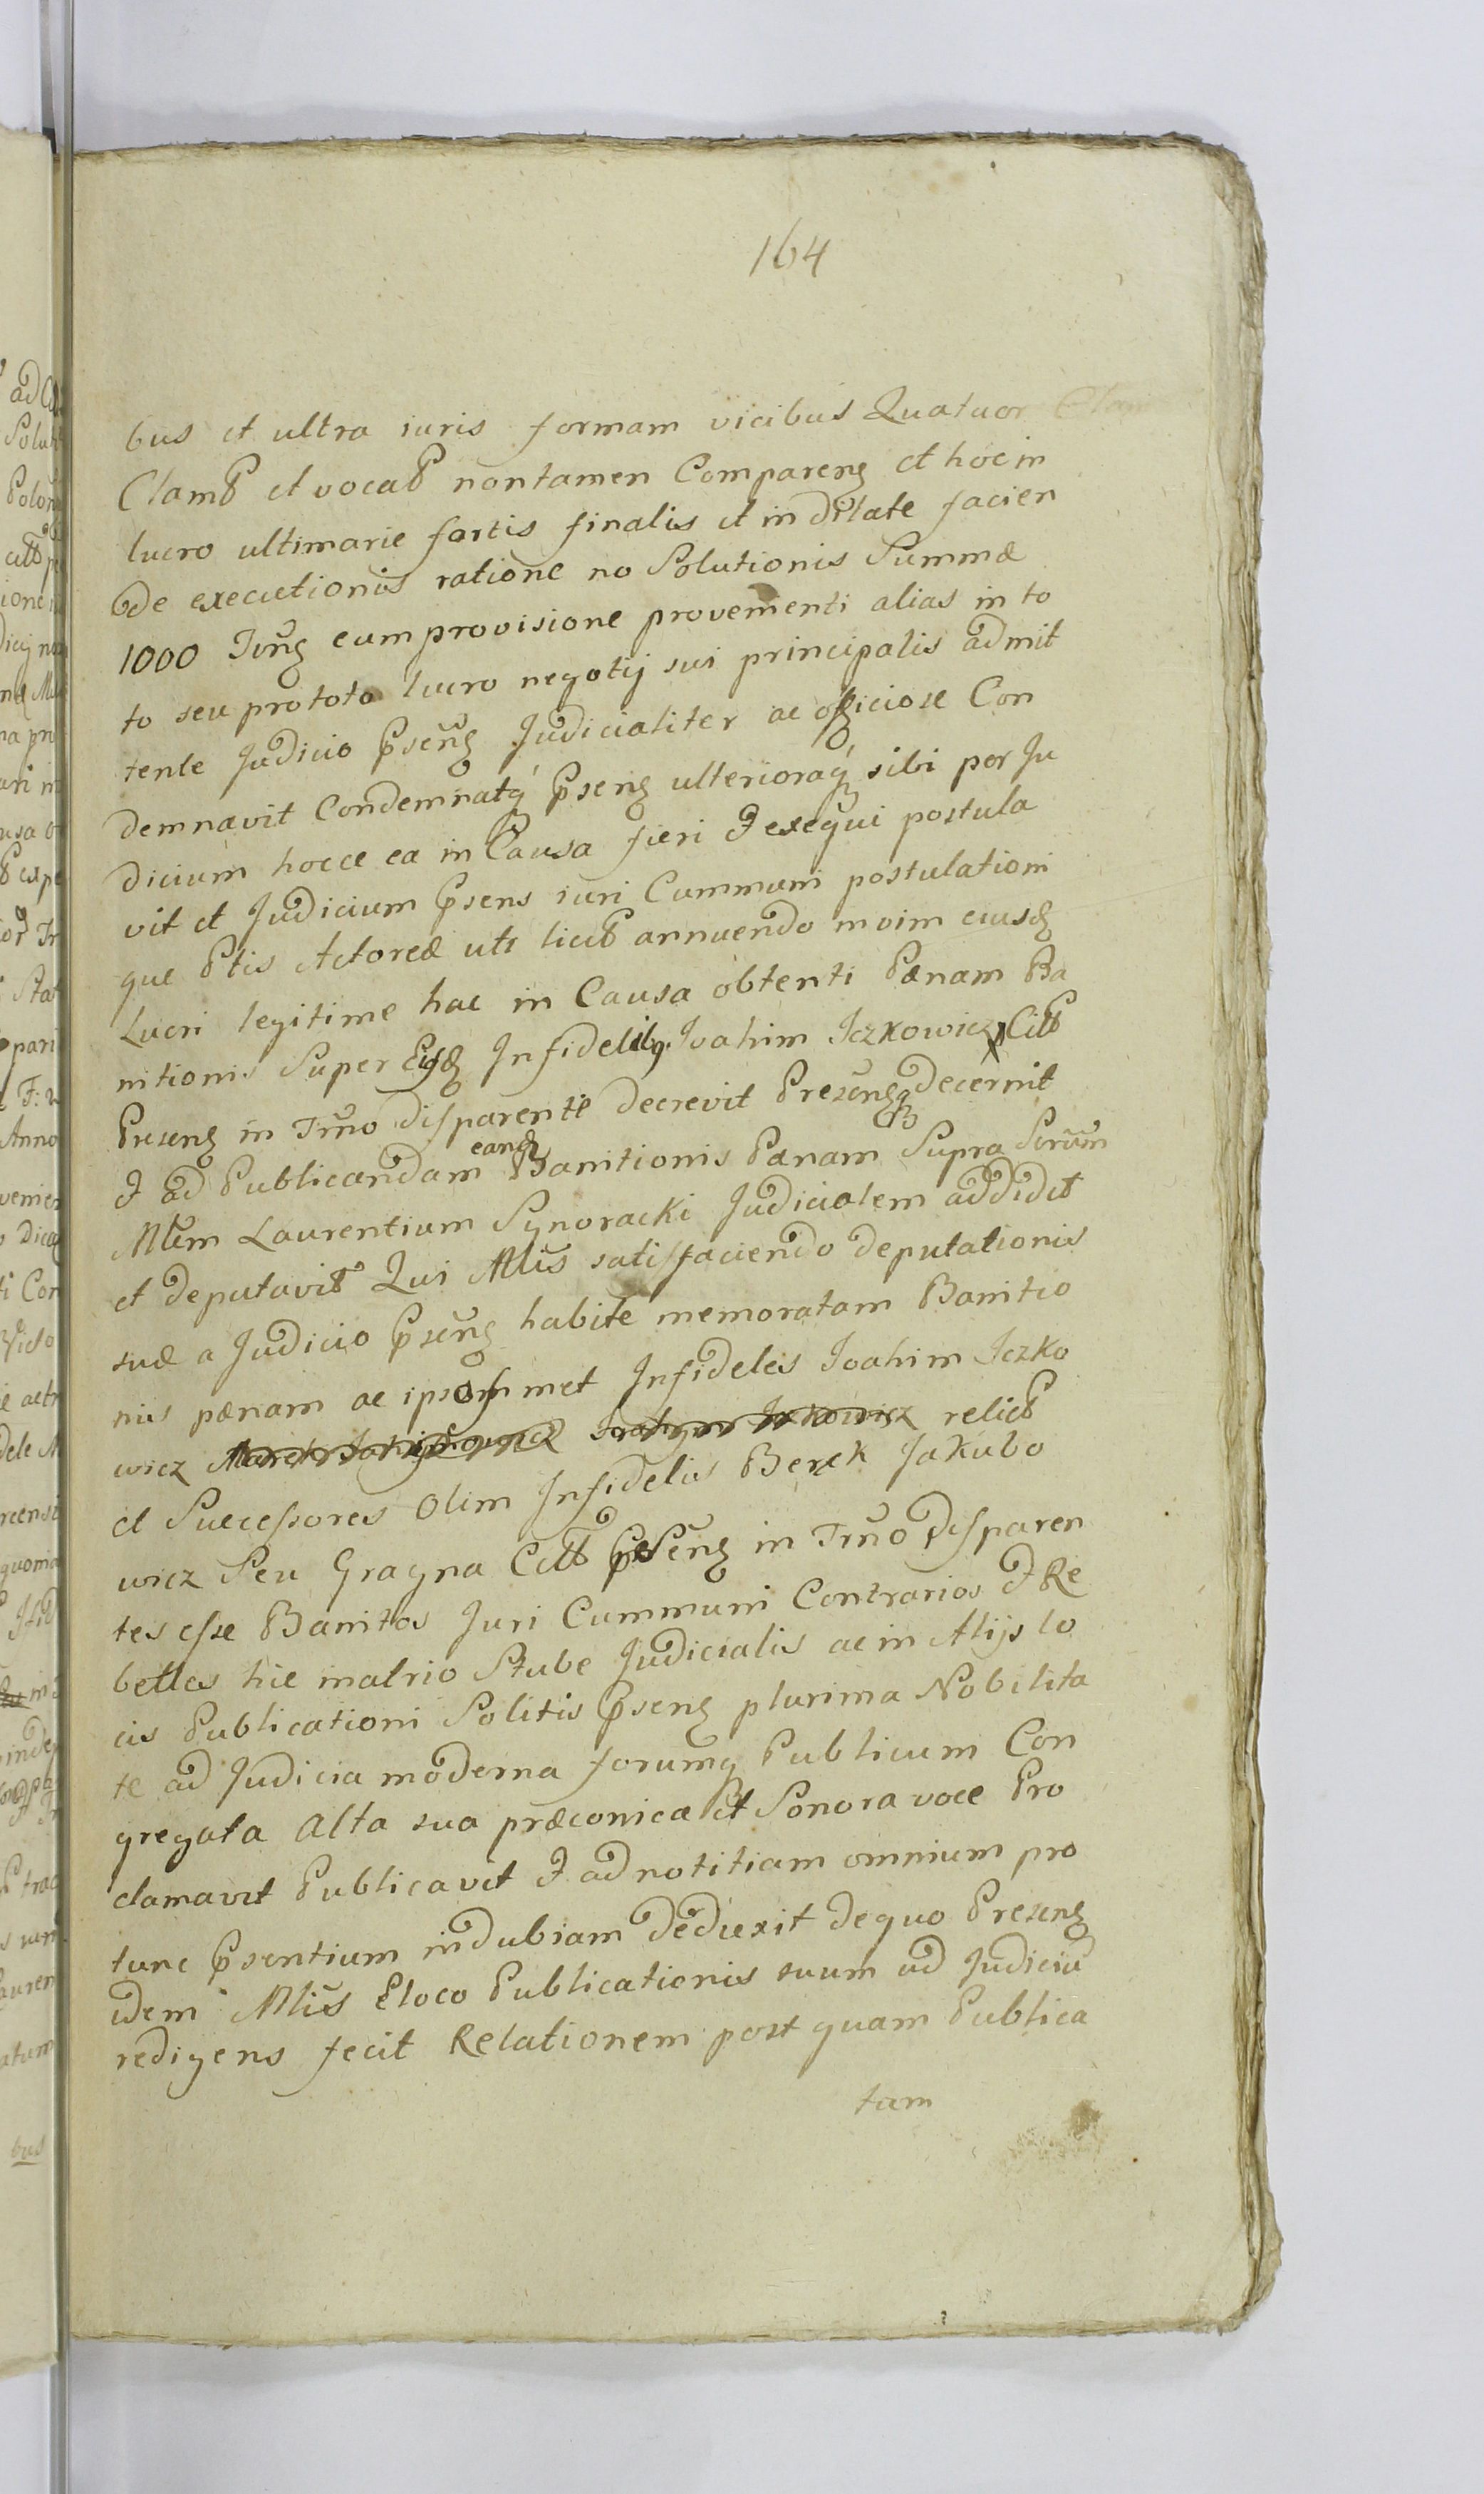 164
bus et ultra iuris formam vicibus Quatuor Clam
Clamt et vocat non tamen Comparens et hoc in
lucro ultimarie sortis finalis et in dilate facien
de executionis ratione no Solutionis Summæ
1000 cum provisione provementi alias in to
to seu pro toto lucro negotij sui principalis admit
tente Judicio Psens Judicialiter ac officiose Con
demnavit Condemnatq Psens ulterioraq sibi per Ju
dicium hocce ea in Causa fieri & exequi postula
vit et Judicium Psens iuri Cummuni postulationi
que Ptis Actoreæ uti licit annuendo in vim eiusd
Lucri legitime hac in Causa obtenti Pænam Ba
nitionis Super Infidelibq Ioahim Iczkowicz Citt
Presens in Trno disparente decrevit Presensq decernit
& ad Publicandam eand Banitionis Pænam Supra Scrum
Mlem Laurentium Synoracki Judicialem addidit
et deputavit Qui Mlis satisfaciendo deputationis
suæ a Judicio Psens habite memoratam Banitio
nis pænam ac ipsosmet Infideles Ioahim Iczko
wicz relict
et Successores Olim Infidelis Berek Jakubo
wicz Seu Gragna Citt Psens in Trno disparen
tes esse Banitos Juri Cummuni Contrarios & Re
belles hic in atrio Stube Judicialis ac in Alijs lo
cis Publicationi Solitis Psens plurima Nobilita
te ad Judicia moderna forumq Publicum Con
gregata Alta sua præconica et Sonora voce Pro
clamavit Publicavit & ad notitiam omnium pro
tunc Psentium indubiam deduxit de quo Presens
idem Mlis Eloco Publicationis suum ad Judiciu
redigens fecit Relationem post quam Publica
tam